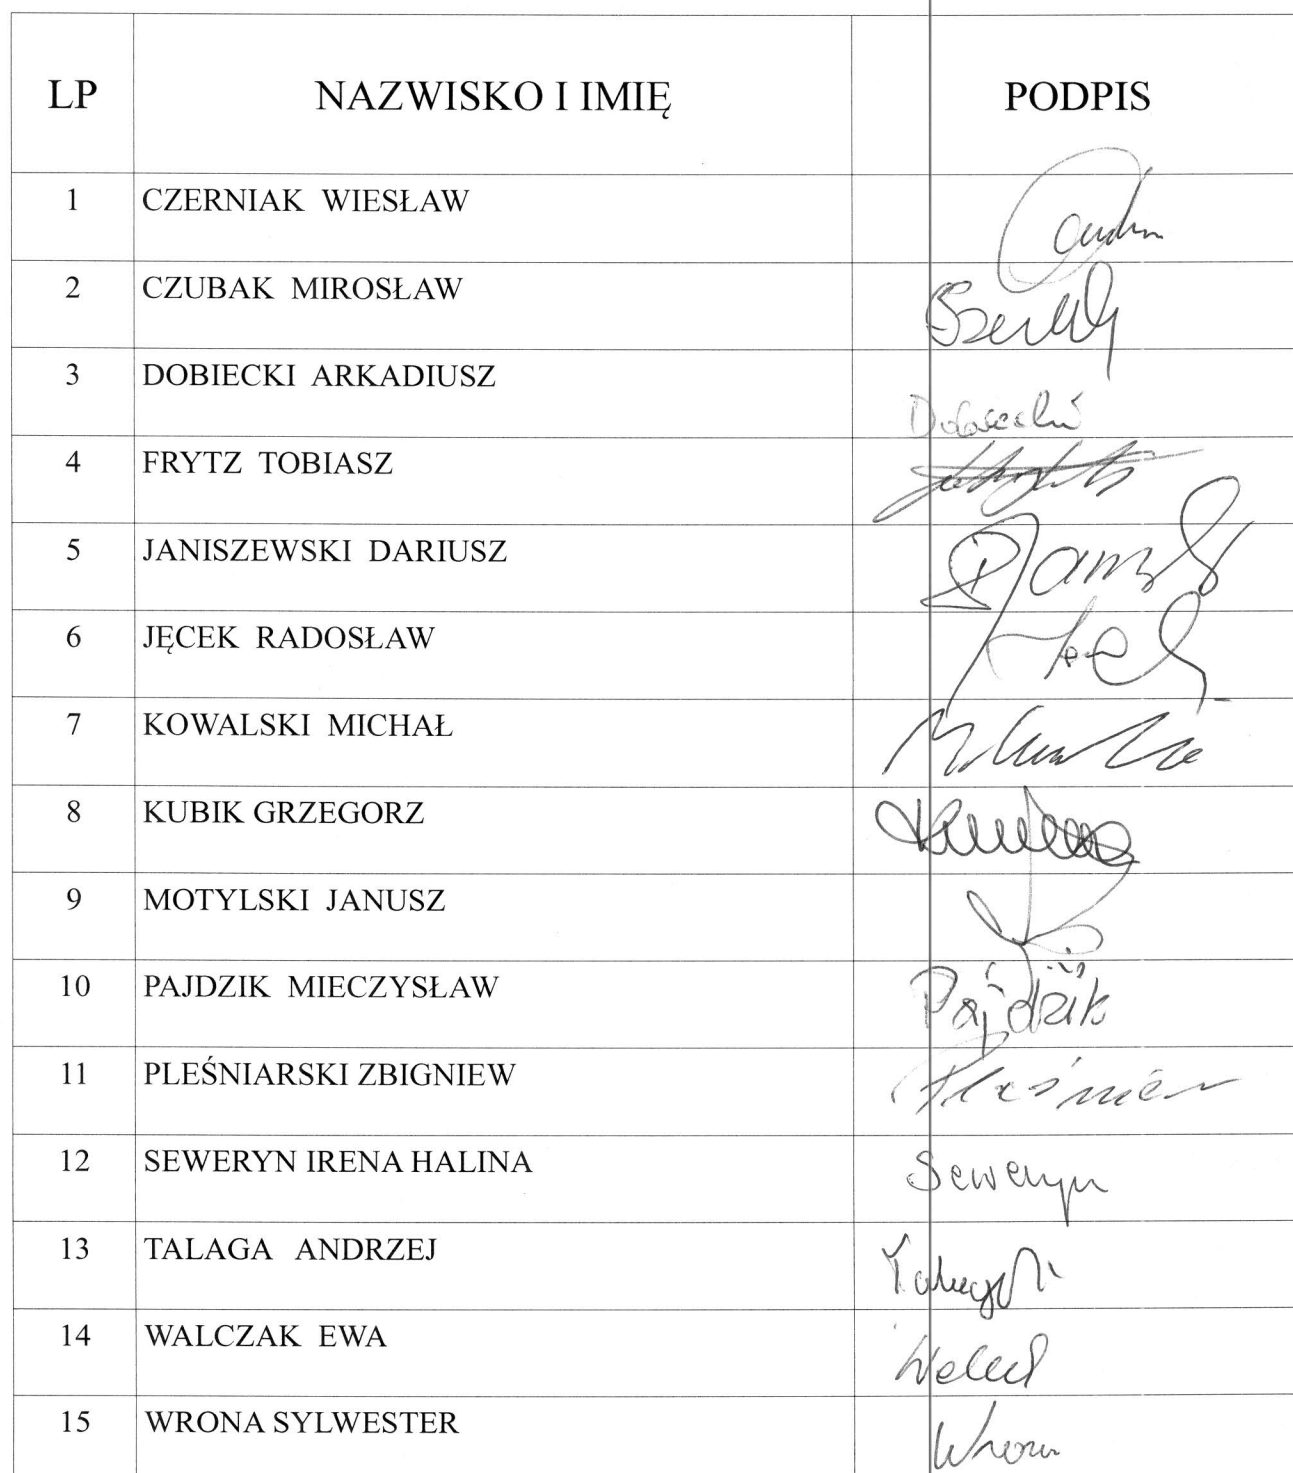 LP NAZWISKO I IMIĘ PODPIS
1 CZERNIAK WIESŁAW
2 CZUBAK MIROSŁAW
3 DOBIECKI ARKADIUSZ Dobiecki
4 FRYTZ TOBIASZ
5 JANISZEWSKI DARIUSZ
6 JĘCEK RADOSŁAW
7 KOWALSKI MICHAŁ
8 KUBIK GRZEGORZ
9 MOTYLSKI JANUSZ
10 PAJDZIK MIECZYSŁAW Pajdzik
11 PLEŚNIARSKI ZBIGNIEW
12 SEWERYN IRENA HALINA Seweryn
13 TALAGA ANDRZEJ
14 WALCZAK EWA
15 WRONA SYLWESTER Wrona